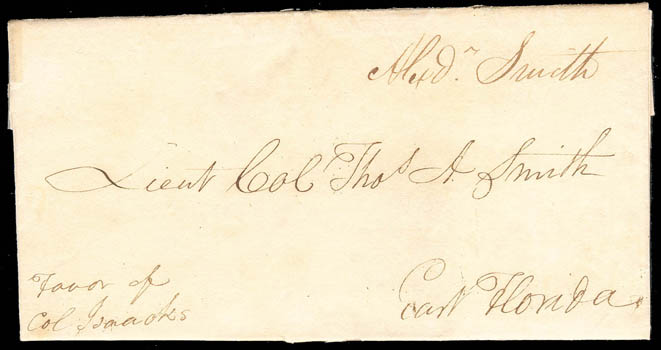 Alexdr Smith
Lieut Col Thos A. Smith
East Florida
Favor of
Col Isaacks